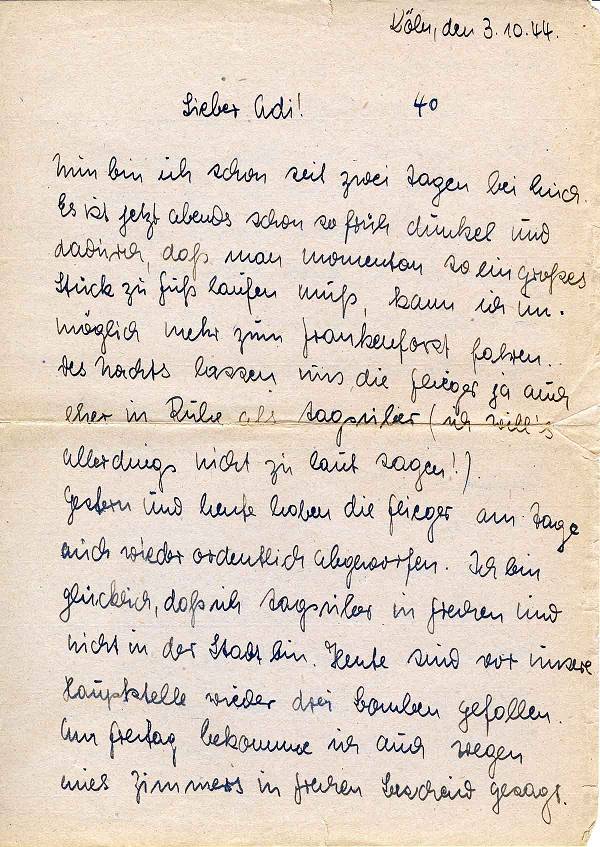 Köln, den 3.10.44.
Lieber Adi! 40
Nun bin ich schon seit zwei Tagen bei
Es ist jetzt abends schon so früh dunkel und
dadurch, daß man momentan so ein großes
Stück zu Fuß laufen muß, kann ich un-
möglich mehr zum Frankenforst fahren.
Des Nachts lassen uns die Flieger ja auch
eher in Ruhe als tagsüber (ich will's
allerdings nicht zu laut sagen!).
Gestern und heute haben die Flieger am Tage
auch wieder ordentlich abgeworfen. Ich bin
glücklich, daß ich tagsüber in Frechen und
nicht in der Stadt bin. Heute sind vor unsere
Hauptstelle wieder drei Bomben gefallen.
Am Freitag bekomme ich auch wegen
eines Zimmers in Frechen Bescheid gesagt.